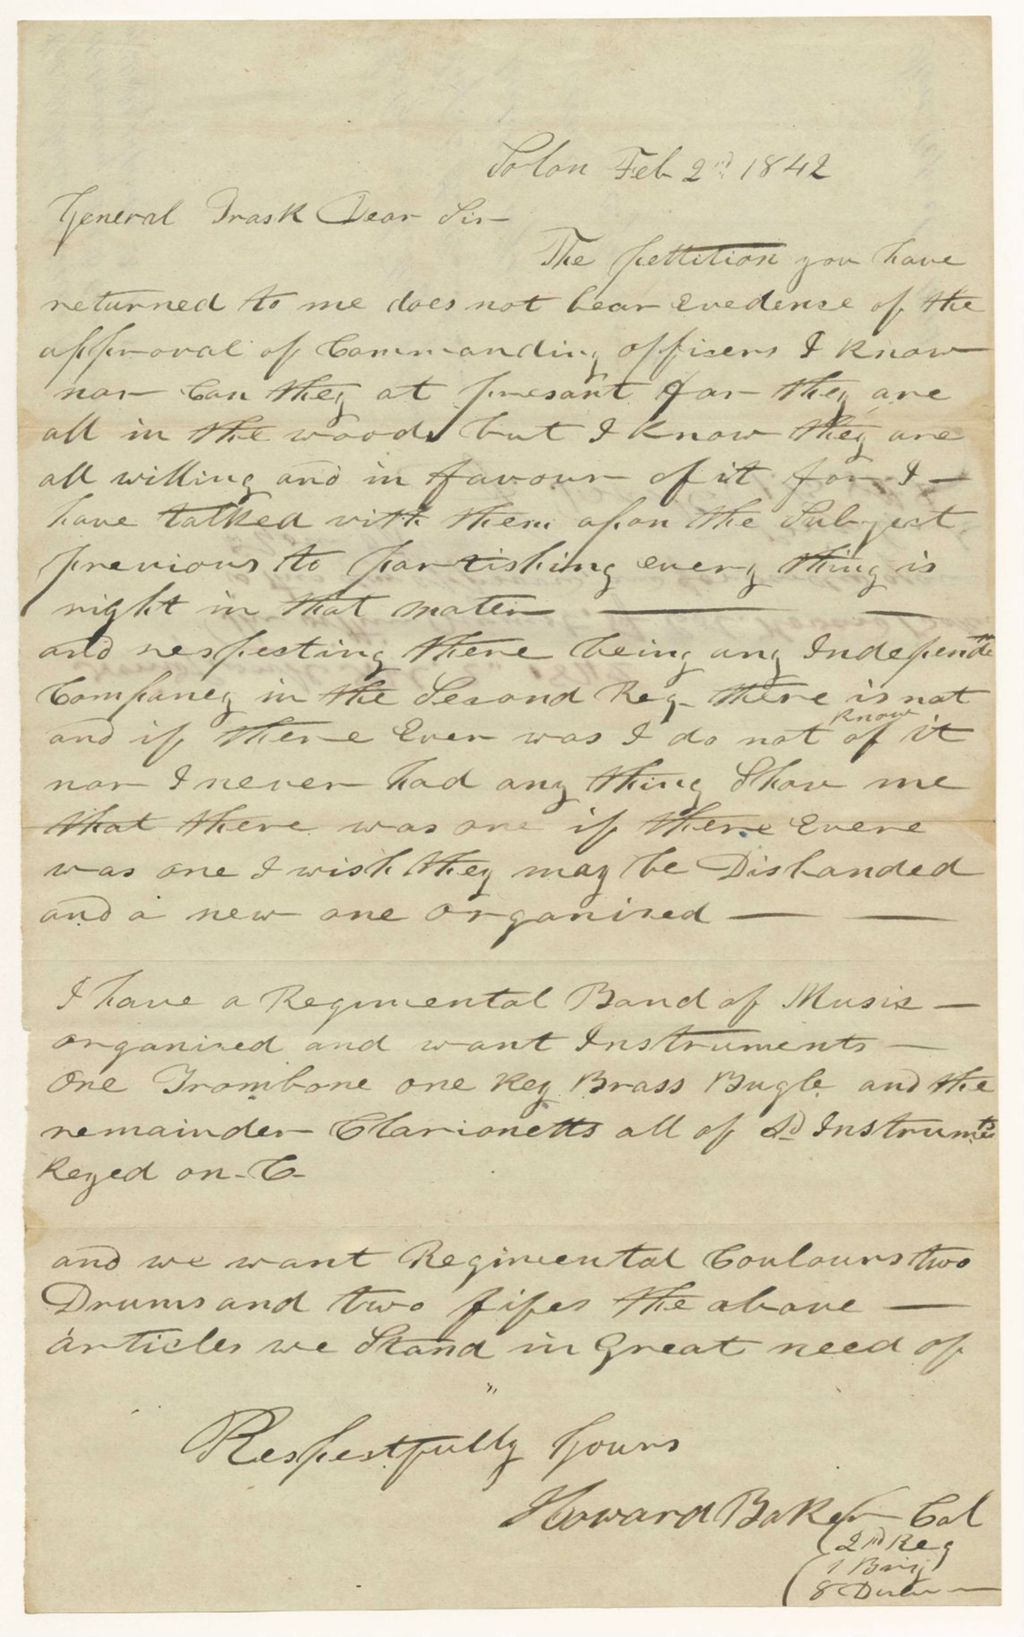 Solon Feb 2nd 1842
General Trask Dear Sir
The pettition you have
returned to me does not bear evedense of the
approval of Commanding offisers I know
nor Can they at presant for they are
all in the woods but I know they are
all willing and in favour of it for I —
have talked with them upon the Subject
previous to partishing every thing is
right in that mater —— —
and respesting there being any Independnte
Companey in the Second Reg there is not
and if there Ever was I do not know of it
nor I never had any thing Shoe me
that there was one if there Evere
was one I wish they may be Disbanded
and a new one organised — —
I have a Regimental Band of Musis —
organised and want Instruments —
One Trombone one Key Brass Bugle and the
remainder Clarionetts all of Sd Instrumts
Keyed on C
and we want Regimental Coulours two
Drums and two fifes the above —
articles we Stand in Great need of
Respestfully Yours
Howard Baker Col
2nd Reg
1 Brig
8 Divi